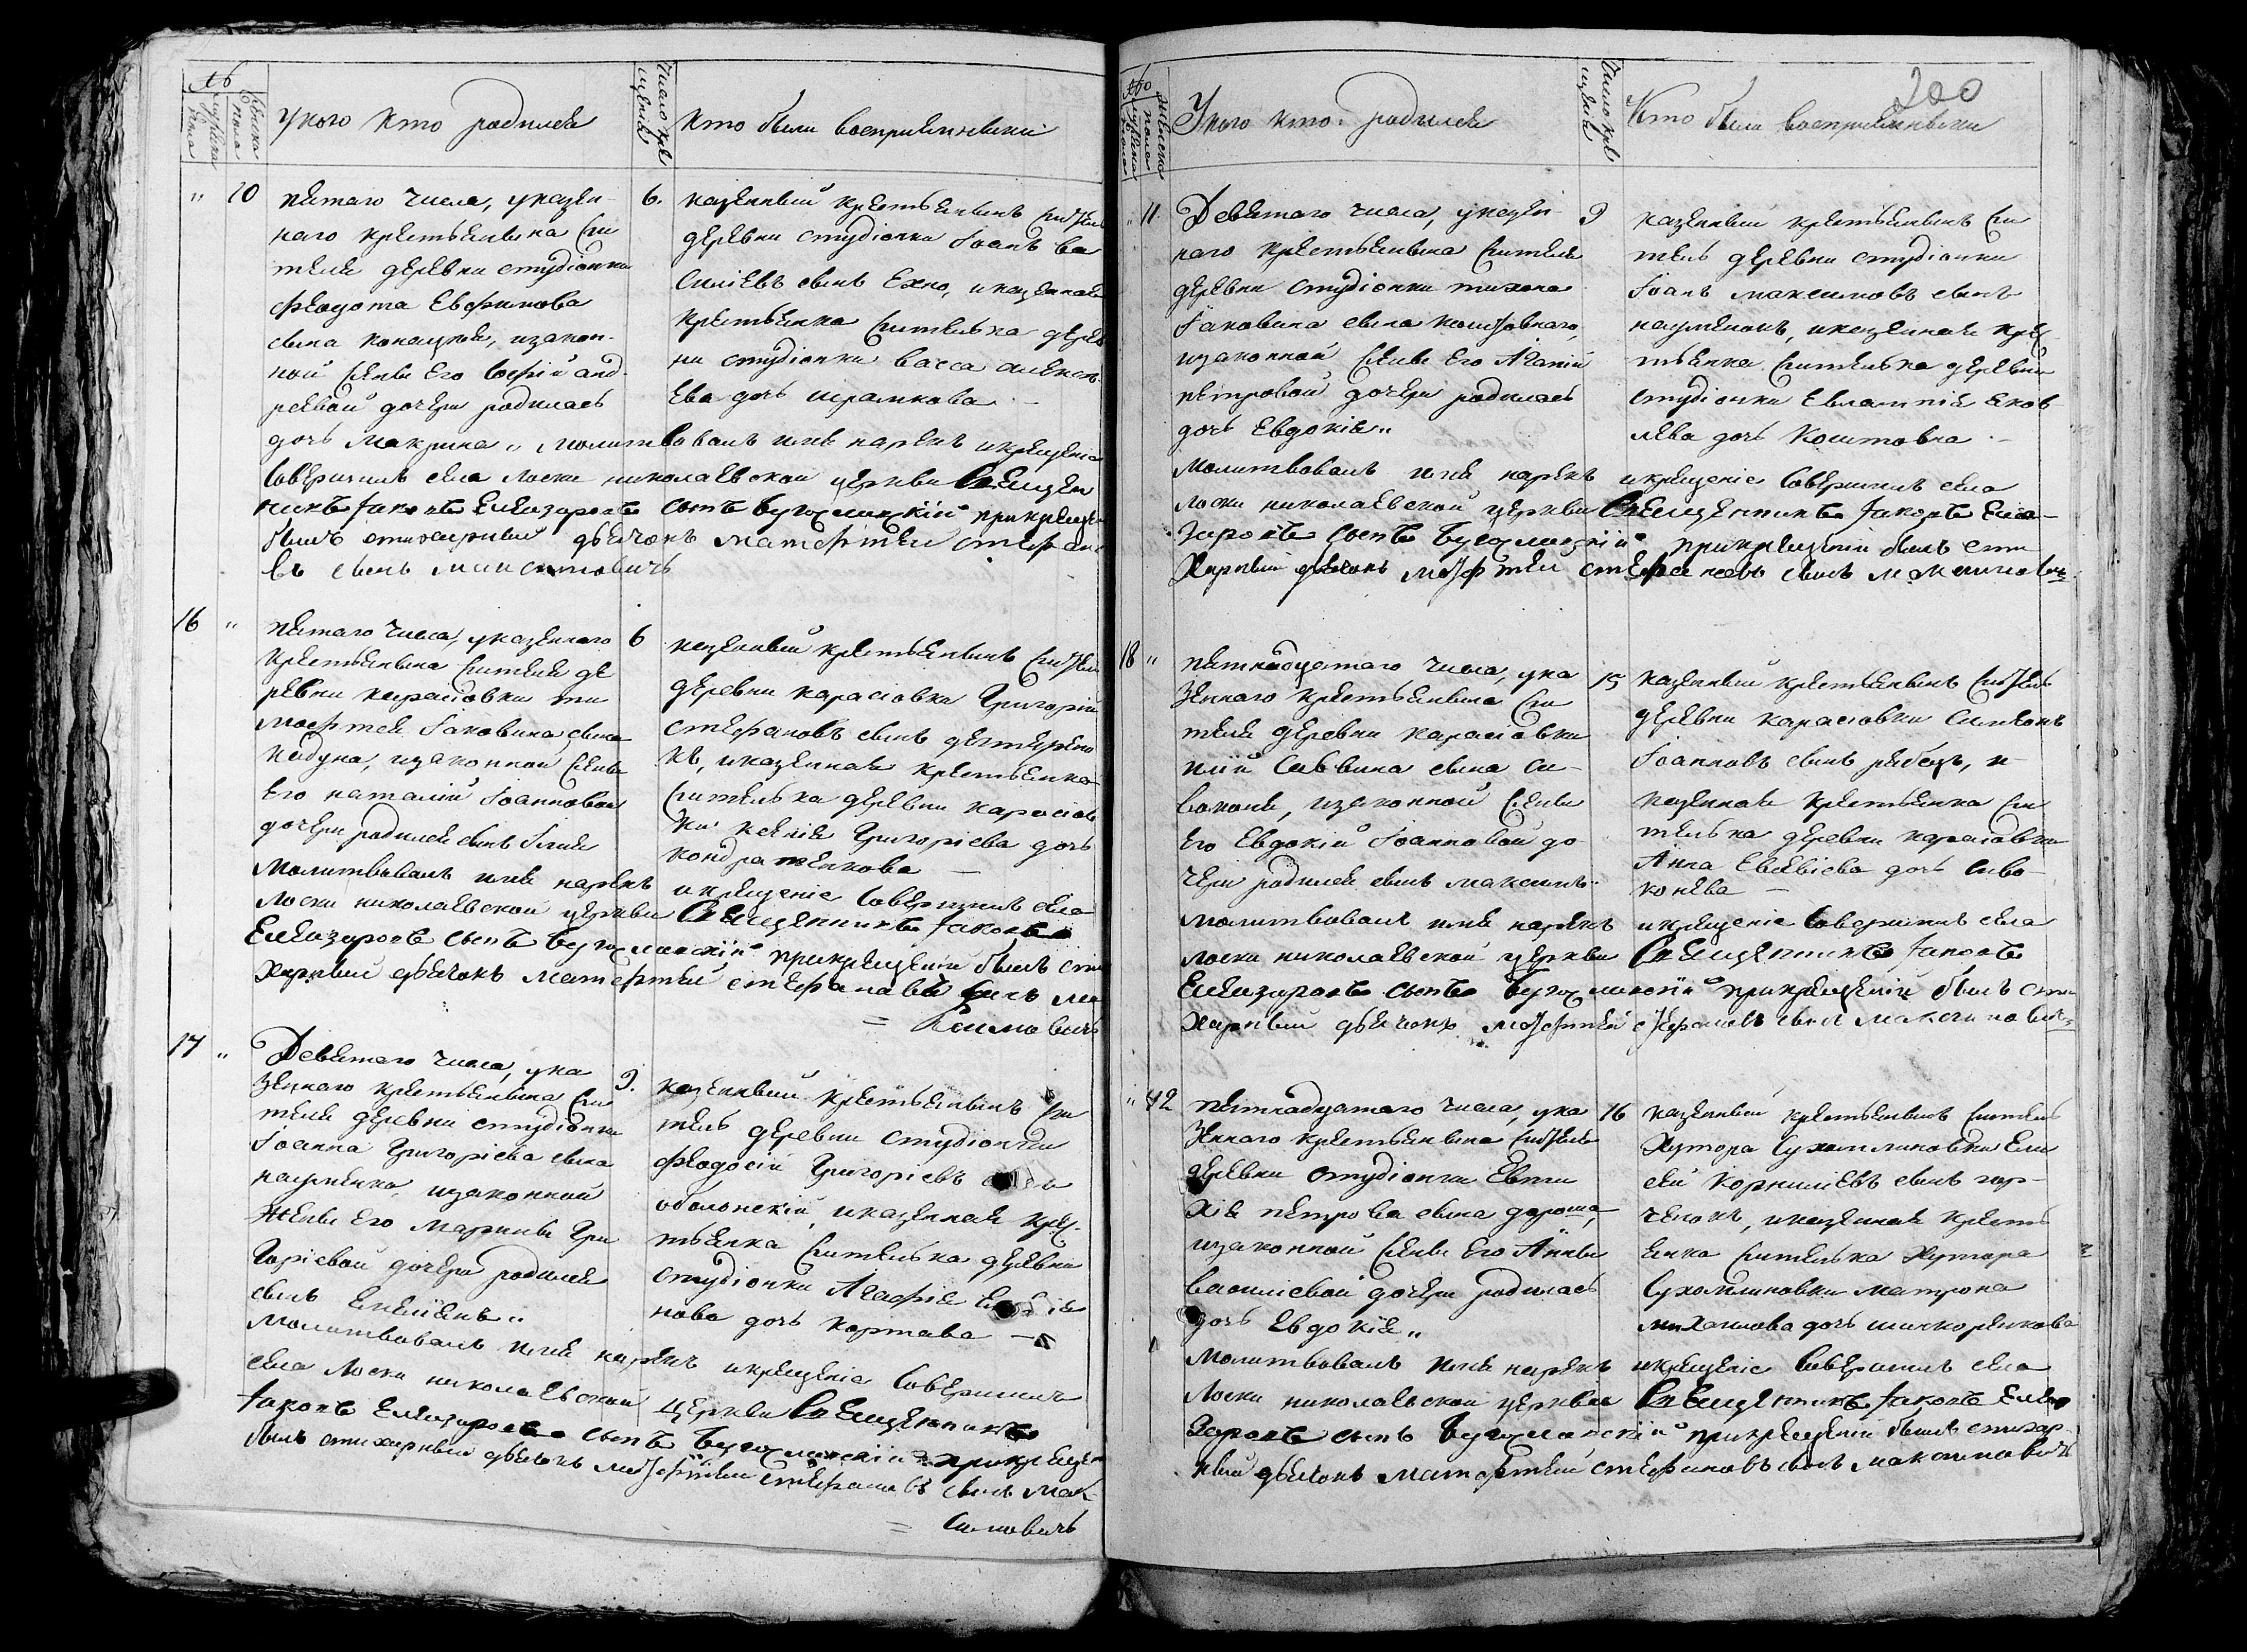 №
мужска
пола
женска
пола
У кого кто родился
Число кре
щенія
Кто были восприемники
" 10 пятаго числа, у казен-
наго крестьянина жи
теля деревни студіонки
Феодота Евфимова
сына, изакон-
ной жены его Софіи анд-
реевой дочери родилась
дочь Макрина "
6. казенный крестьянинъ житель
деревни студіонки Іоанъ ва
силіевъ сынъ Ехно, и казенная
крестьянка жителька дерев
ни студіонки васса алексѣ
ева дочь шрамкова —
молитвовалъ имя нарекъ и крещеніе
совершилъ села Лоски николаевской церкви Священ
никъ Іаковъ Елеазаровъ сынъ при крещеніи
былъ стихарный дьячокъ Матефтей стефано
въ сынъ Максимовичъ
16 " пятаго числа, у казеннаго
крестьянина жителя де
ревни карасіовки ти
мофтея Іаковина сына
изаконной жены
его наталіи Іоанновой
дочери родился сынъ Илія
6 казенный крестьянинъ житель
деревни карасіовки Григорій
стефановъ сынъ дегтярено
къ, и казенная крестьянка
жителька деревни карасіов
ки ксенія Григоріева дочь
кондратенкова —
молитвовалъ имя нарекъ и крещеніе совершилъ села
Лоски николаевской церкви Священникъ Іаковъ
Елеазаровъ сынъ при крещеніи былъ сти
харный дьячокъ Матефтей стефановъ сынъ Мак
= симовичъ
17 " Девятаго числа, у ка
зеннаго крестьянина жи
теля деревни студіонки
Іоанна Григоріева сына
науменка, изаконной
жены его Марины Гри
горіевой дочери родился
сынъ Емеліянъ "
9. казенный крестьянинъ жи
тель деревни студіонки
Феодосій Григоріевъ сынъ
оболонскій, и казенная крес-
тьянка жителька деревни
студіонки Агафія
нова дочь
молитвовалъ имя нарекъ и крещеніе совершилъ
села Лоски николаевской церкви Священникъ
Іаковъ Елеазаровъ сынъ при крещеніи
былъ стихарный дьячокъ Матефтей стефановъ сынъ Мак-
= симовичъ
200
№
мужска
пола
женска
пола
У кого кто родился
Число кре
щенія
Кто были восприемники
" 11 Девятаго числа, у казен-
наго крестьянина жителя
деревни студіонки тихона
Іаковина сына коштовнаго,
изаконной жены его Агапіи
петровой дочери родилась
дочь Евдокія "
9 казенный крестьянинъ жи
тель деревни студіонки
Іоанъ максимовъ сынъ
науменокъ, и казенная крес-
тьянка жителька деревни
студіонки Евлампія яков-
лева дочь Коштовна —
молитвовалъ имя нарекъ и крещеніе совершилъ села
Лоски николаевской церкви Священникъ Іаковъ Елеа-
заровъ сынъ при крещеніи былъ сти
харный дьячокъ Матефтей стефановъ сынъ Максимовичъ
18 " пятнадцатаго числа, у ка
зеннаго крестьянина жи
теля деревни карасіовки
иліи Саввина сына си-
воконя, изаконной жены
его Евдокіи Іоанновой до
чери родился сынъ максимъ "
15 казенный крестьянинъ житель
деревни карасіовки Симеонъ
Іоанновъ сынъ рябецъ, и
казенная крестьянка жи
телька деревни карасіовки
Анна Евсевіева дочь Сиво-
конева —
молитвовалъ имя нарекъ и крещеніе совершилъ села
Лоски николаевской церкви Священникъ Іаковъ
Елеазаровъ сынъ при крещеніи былъ сти
харный дьячокъ Матефтей стефановъ сынъ Максимовичъ
" 12 пятнадцатаго числа, у ка
зеннаго крестьянина жителя
деревни студіонки Евти
хія петрова сына дороша,
изаконной жены его Анны
василіевой дочери родилась
дочь Евдокія "
16 казенный крестьянинъ житель
хутора Сухомлиновки Ели
сей Корниліевъ сынъ гор-
ченокъ, и казенная кресть
янка жителька хутора
Сухомлиновки матрона
михаилова дочь
молитвовалъ имя нарекъ и крещеніе совершилъ села
Лоски николаевской церкви Священникъ Іаковъ Елеа
заровъ сынъ при крещеніи былъ стихар-
ный дьячокъ Матефтей стефановъ сынъ максимовичъ